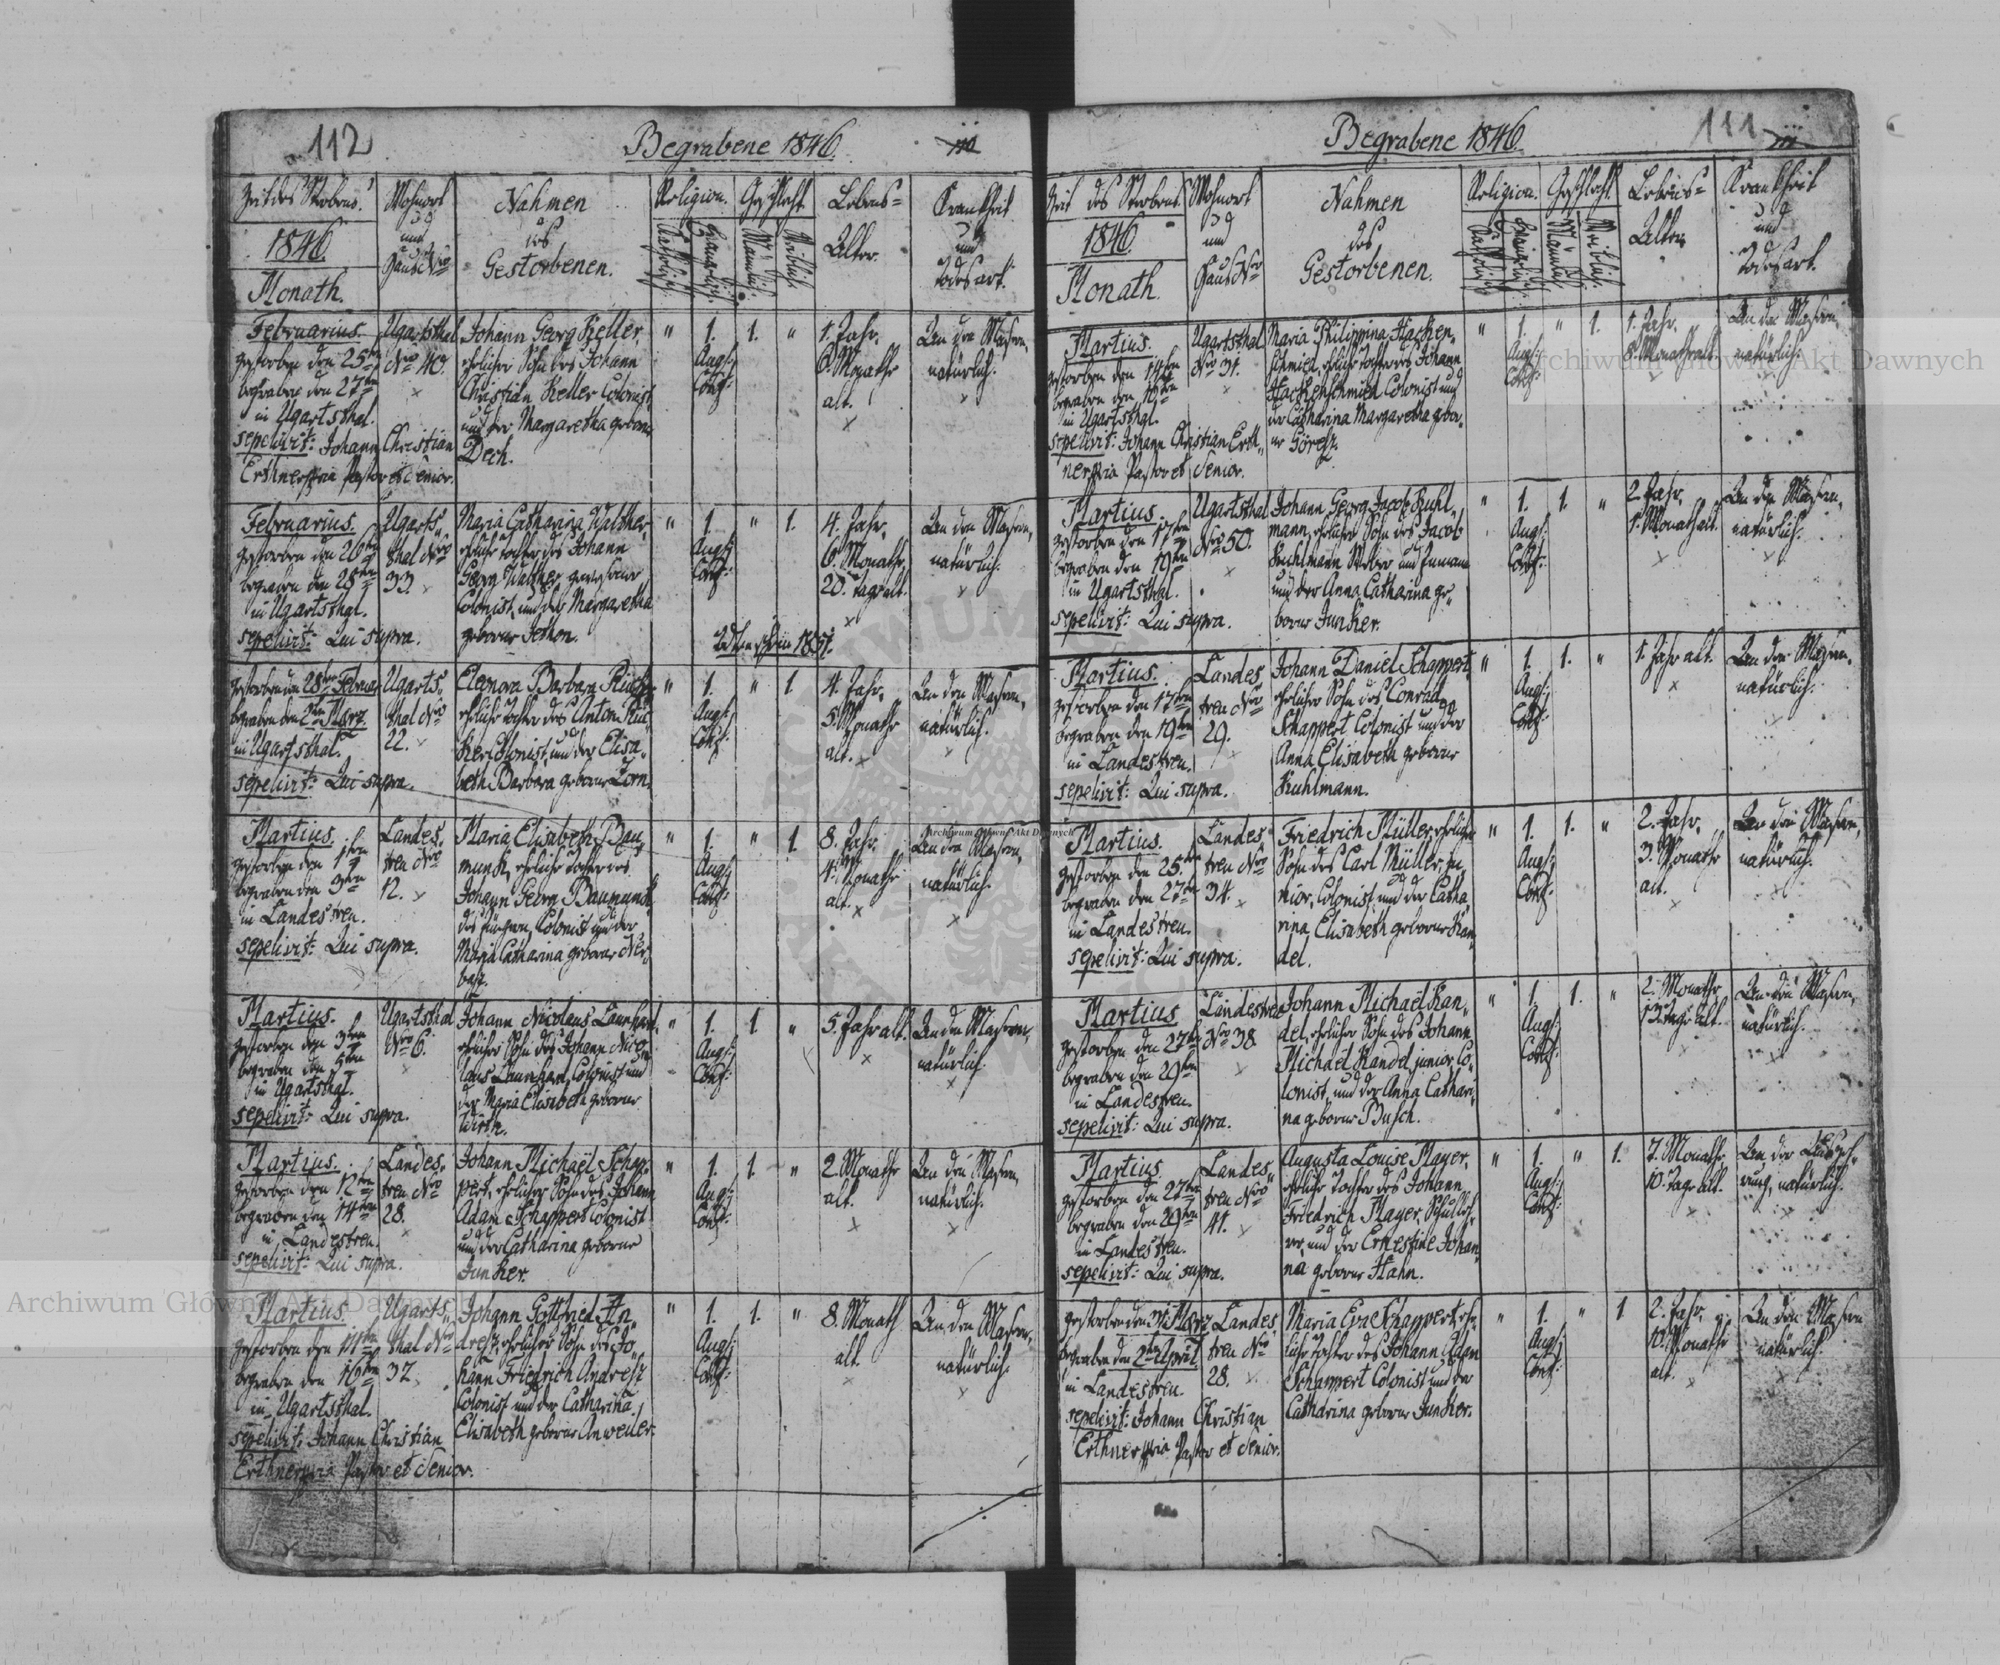 112
Begrabene 1846.
Zeit des Sterbens.
1846.
Monath.
Wohnort
und
Haus Nro
Nahmen
des
Gestorbenen.
Religion.
Katholisch.
Evangelisch.
Geschlecht.
Männlich.
Weiblich.
Lebens=
Alter.
Krankheit
und
Todesart.
Februarius.
gestorben den 25ten
begraben den 27ten
in Ugartsthal.
sepelivit: Johann Christian
Erthner, Pastor et Senior.
Ugartsthal
Nro 40.
Johann Georg Keller,
ehelicher Sohn des Johann
Christian Keller Colonist,
und der Margaretha geborne
Dech.
" 1. 1. "
Augs:
Conf:
1. Jahr,
6. Monathe
alt.
An den Masern,
natürlich.
Februarius.
gestorben den 26ten
begraben den 28ten
in Ugartsthal.
sepelivit: Qui supra.
Ugarts-
thal Nro
33.
Maria Catharina Walther,
eheliche Tochter des Johann
Georg Walther, gewesener
Colonist, und der Margaretha
geborne Jethon.
" 1. " 1.
Augs:
Conf:
4. Jahr,
6. Monathe,
20. Tage alt.
An den Masern,
natürlich.
gestorben den 28ten Februar
begraben den 2ten März
in Ugartsthal.
sepelivit: Qui supra.
Ugarts-
thal Nro
22.
Eleonora Barbara
eheliche Tochter des Anton
Colonist, und der Elisa-
beth Barbara geborne Zorn.
" 1. " 1.
Augs:
Conf:
4. Jahr,
5. Monathe
alt.
An den Masern,
natürlich.
Martius.
gestorben den 1ten
begraben den 3ten
in Landestreu.
sepelivit: Qui supra.
Landes-
treu Nro
12.
Maria Elisabeth Bau-
munk, eheliche Tochter des
Johann Georg Baumunk
des jüngern, Colonist und der
Maria Catharina geborne Ner-
basz.
" 1. " 1.
Augs:
Conf:
8. Jahr,
4. Monathe
alt.
An den Masern,
natürlich.
Martius.
gestorben den 3ten
begraben den 5ten
in Ugartsthal.
sepelivit: Qui supra.
Ugartsthal
Nro 6.
Johann Nicolaus Launhart,
ehelicher Sohn des Johann Nico-
laus Launhart, Colonist und
der Maria Elisabeth geborne
Wirth.
" 1. 1. "
Augs:
Conf:
5. Jahr alt.
An den Masern,
natürlich.
Martius.
gestorben den 12ten
begraben den 14ten
in Landestreu.
sepelivit: Qui supra.
Landes-
treu Nro
28.
Johann Michael Schap-
pert, ehelicher Sohn des Johann
Adam Schappert Colonist
und der Catharina geborne
Junker.
" 1. 1. "
Augs:
Conf:
2. Monathe
alt.
An den Masern,
natürlich.
Martius.
gestorben den 14ten
begraben den 16ten
in Ugartsthal.
sepelivit: Johann Christian
Erthner, Pastor et Senior.
Ugarts-
thal Nro
37.
Johann Gottfried An-
dresz, ehelicher Sohn des Jo-
hann Friedrich Andresz
Colonist und der Catharina
Elisabeth geborne Anweiler.
" 1. 1. "
Augs:
Conf:
8. Monath
alt.
An den Masern,
natürlich.
Begrabene 1846.
111
Zeit des Sterbens.
1846.
Monath.
Wohnort
und
Haus Nro
Nahmen
des
Gestorbenen.
Religion.
Katholisch.
Evangelisch.
Geschlecht.
Männlich.
Weiblich.
Lebens=
Alter.
Krankheit
und
Todesart.
Martius.
gestorben den 14ten
begraben den 16ten
in Ugartsthal.
sepelivit: Johann Christian Erth-
ner, Pastor et Senior.
Ugartsthal
Nro 31.
Maria Philippina Hachen-
schmied, eheliche Tochter des Johann
Hachenschmied Colonist und
der Catharina Margaretha gebor-
ne Göres.
" 1. " 1.
Augs:
Conf:
1. Jahr,
8. Monathe alt.
An den Masern,
natürlich.
Martius.
gestorben den 17ten
begraben den 19ten
in Ugartsthal.
sepelivit: Qui supra.
Ugartsthal
Nro 50.
Johann Georg Jacob Kuhl-
mann, ehelicher Sohn des Jacob
Kuhlmann Weber und Inmann
und der Anna Catharina ge-
borne Junker.
" 1. 1. "
Augs:
Conf:
2. Jahr,
1. Monath alt.
An den Masern,
natürlich.
Martius.
gestorben den 17ten
begraben den 19ten
in Landestreu.
sepelivit: Qui supra.
Landes-
treu Nro
29.
Johann Daniel Schappert
ehelicher Sohn des Conrad
Schappert Colonist und der
Anna Elisabeth geborne
Kuhlmann.
" 1. 1. "
Augs:
Conf:
1. Jahr alt.
An den Masern,
natürlich.
Martius.
gestorben den 25ten
begraben den 27ten
in Landestreu.
sepelivit: Qui supra.
Landes-
treu Nro
34.
Friedrich Müller, ehelicher
Sohn des Carl Müller, ju-
nior, Colonist, und der Catha-
rina Elisabeth geborne Kan-
del.
" 1. 1. "
Augs:
Conf:
2. Jahr,
3. Monathe
alt.
An den Masern,
natürlich.
Martius
gestorben den 27ten
begraben den 29ten
in Landestreu.
sepelivit: Qui supra.
Landestreu
Nro 38.
Johann Michael Kan-
del, ehelicher Sohn des Johann
Michael Kandel, junior, Co-
lonist, und der Anna Cathari-
na geborne Busch.
" 1. 1. "
Augs:
Conf:
2. Monathe
13. Tage alt.
An den Masern,
natürlich.
Martius
gestorben den 27ten
begraben den 29ten
in Landestreu.
sepelivit: Qui supra.
Landes-
treu Nro
41.
Augusta Louise Mayer,
eheliche Tochter des Johann
Friedrich Mayer, Schulleh-
rer, und der Ernestine Johan-
na geborne Hahn.
" 1. " 1.
Augs:
Conf:
7. Monathe
10. Tage alt.
An der
natürlich.
gestorben den 31. März
begraben den 2ten April
in Landestreu.
sepelivit: Johann Christian
Erthner, Pastor et Senior.
Landes-
treu Nro
28.
Maria Eva Schappert, ehe-
liche Tochter des Johann Adam
Schappert Colonist und der
Catharina geborne Junker.
" 1. " 1
Augs:
Conf:
2. Jahr,
10. Monathe
alt.
An den Masern
natürlich.
Archiwum Główne Akt Dawnych
Archiwum Główne Akt Dawnych
Archiwum Główne Akt Dawnych